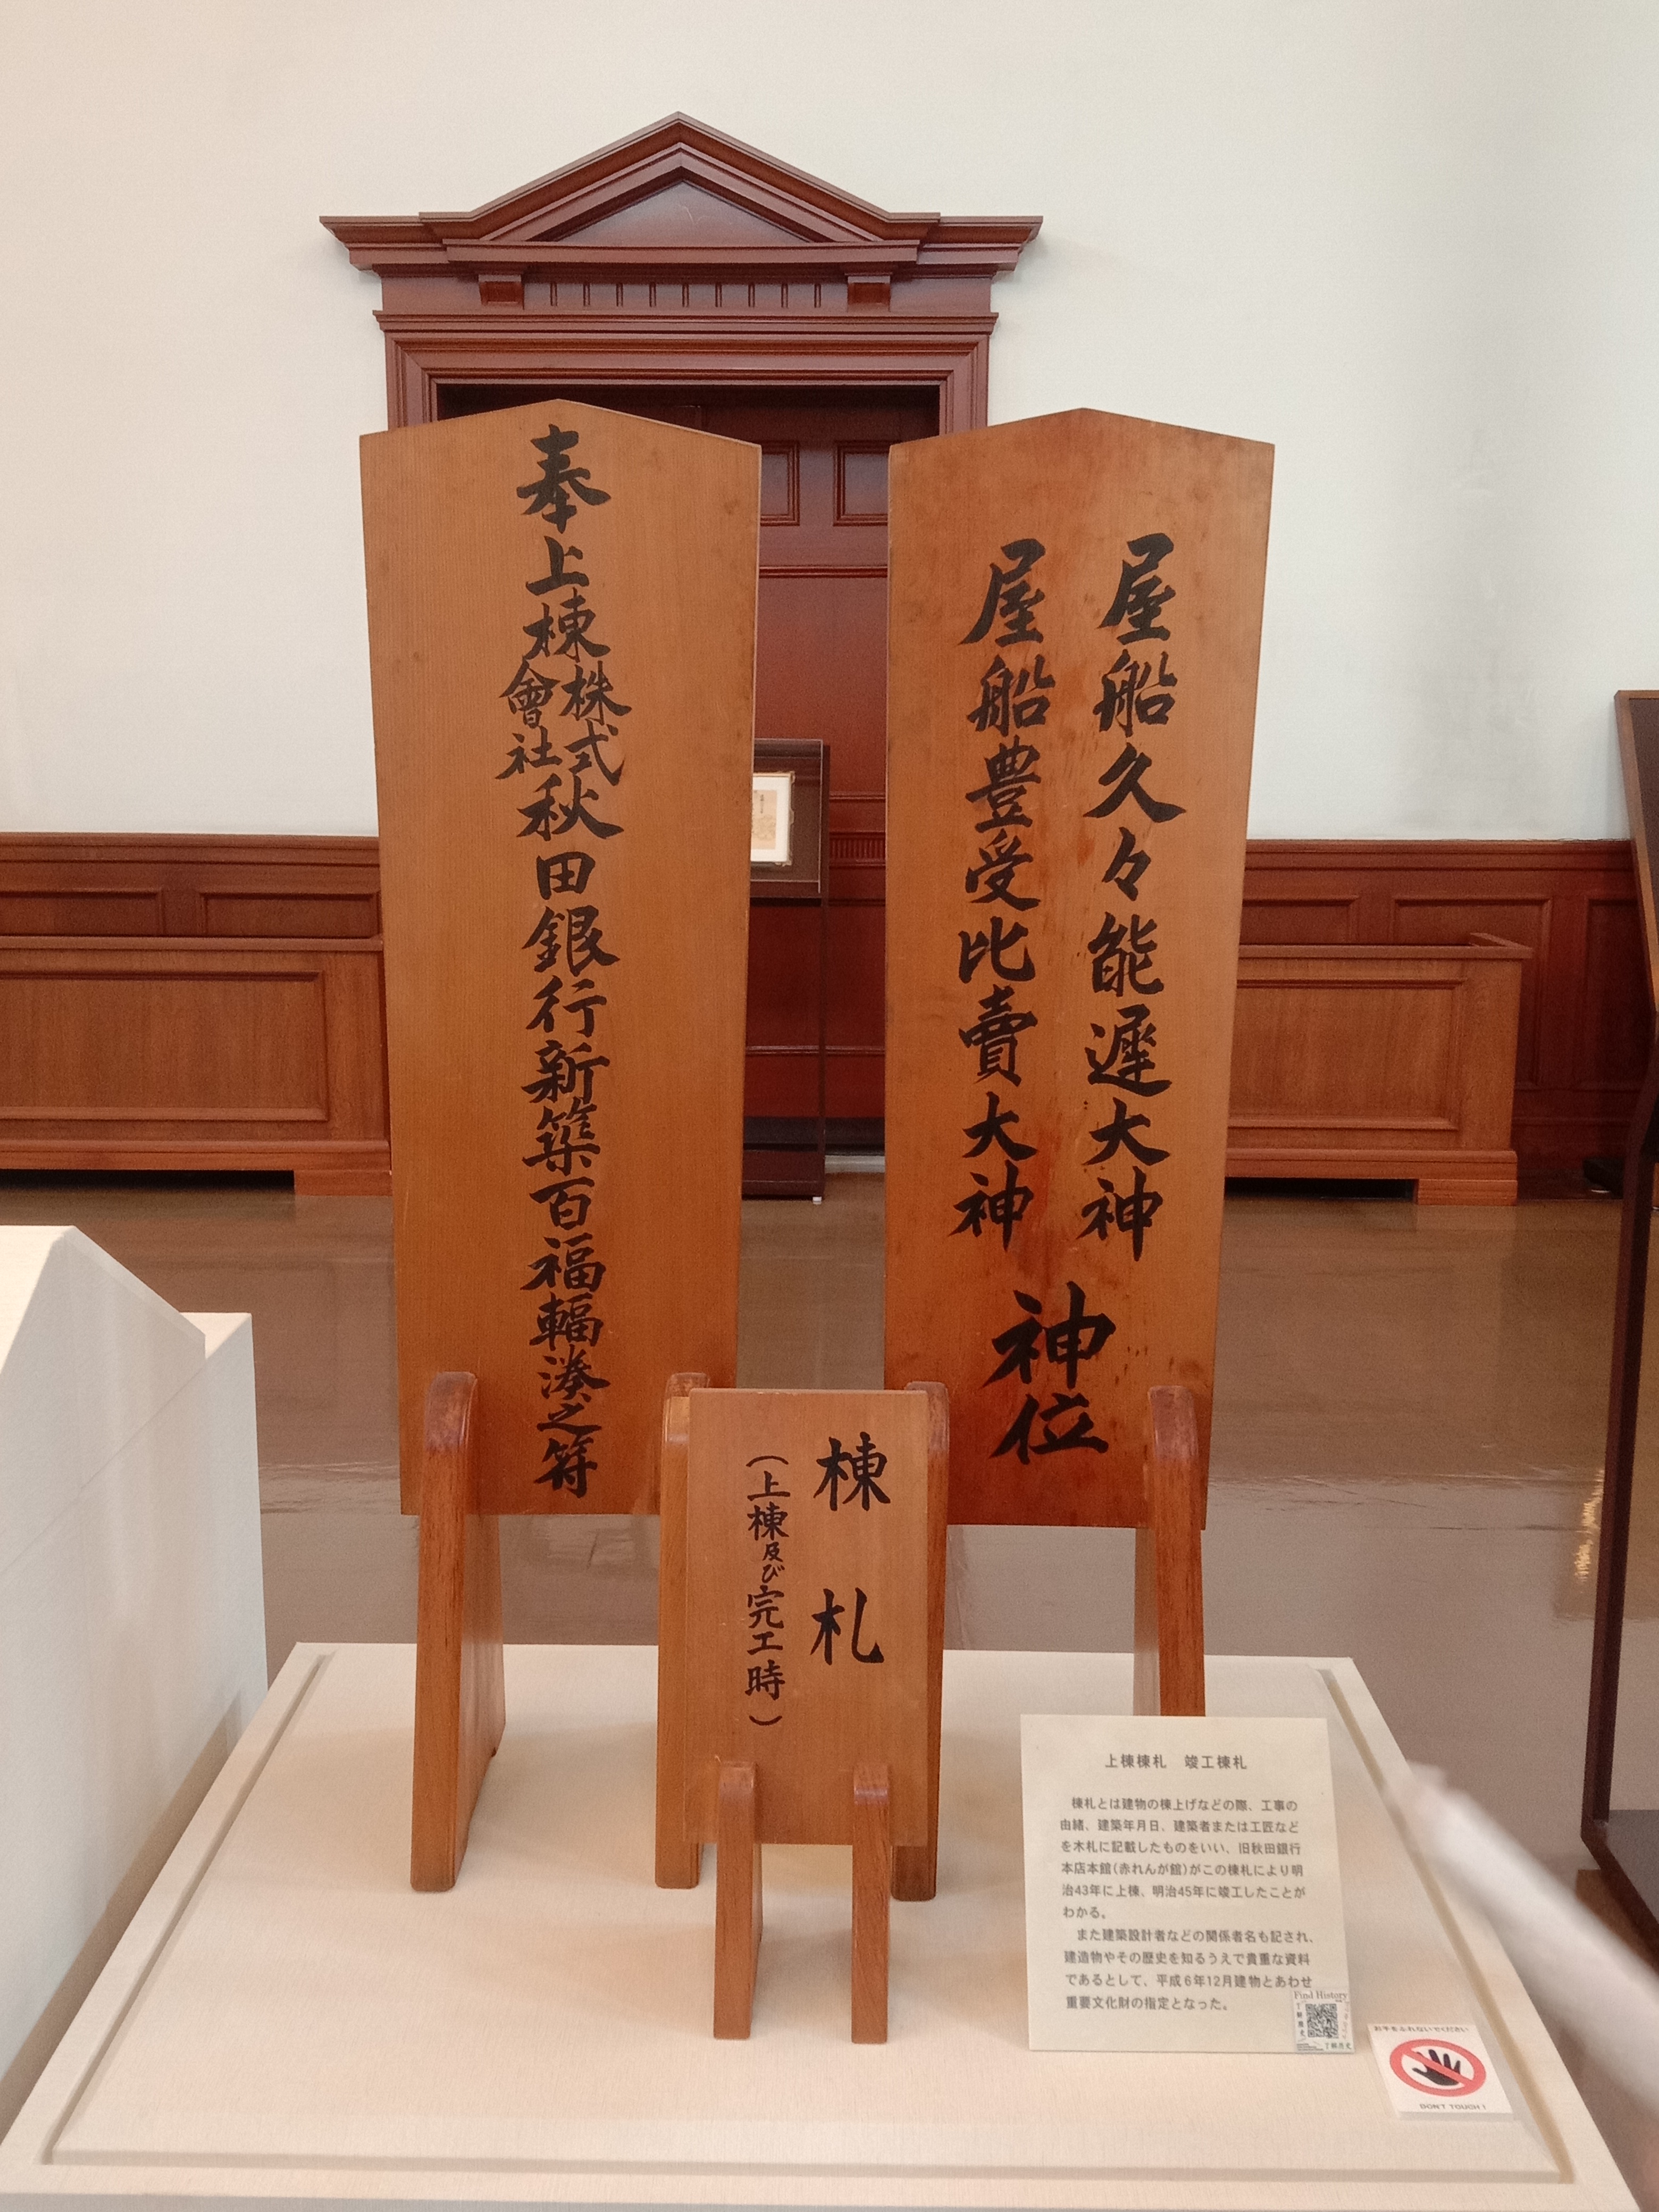 屋船久々能遲大神
屋船豊受比賣大神
神位
奉上棟株式會社秋田銀行新築百福輻湊之符
棟札
（上棟及び完工時）
上棟棟札　竣工棟札
棟札とは建物の棟上げなどの際、工事の
由緒、建築年月日、建築者または工匠など
を木札に記載したものをいい、旧秋田銀行
本店本館(赤れんが館)がこの棟札により明
治43年に上棟、明治45年に竣工したことが
わかる。
また建築設計者などの関係者名も記され、
建造物やその歴史を知るうえで貴重な資料
であるとして、平成6年12月建物とあわせ
重要文化財の指定となった。
Find History
了解歴史
お手をふれないでください
DON'T TOUCH!